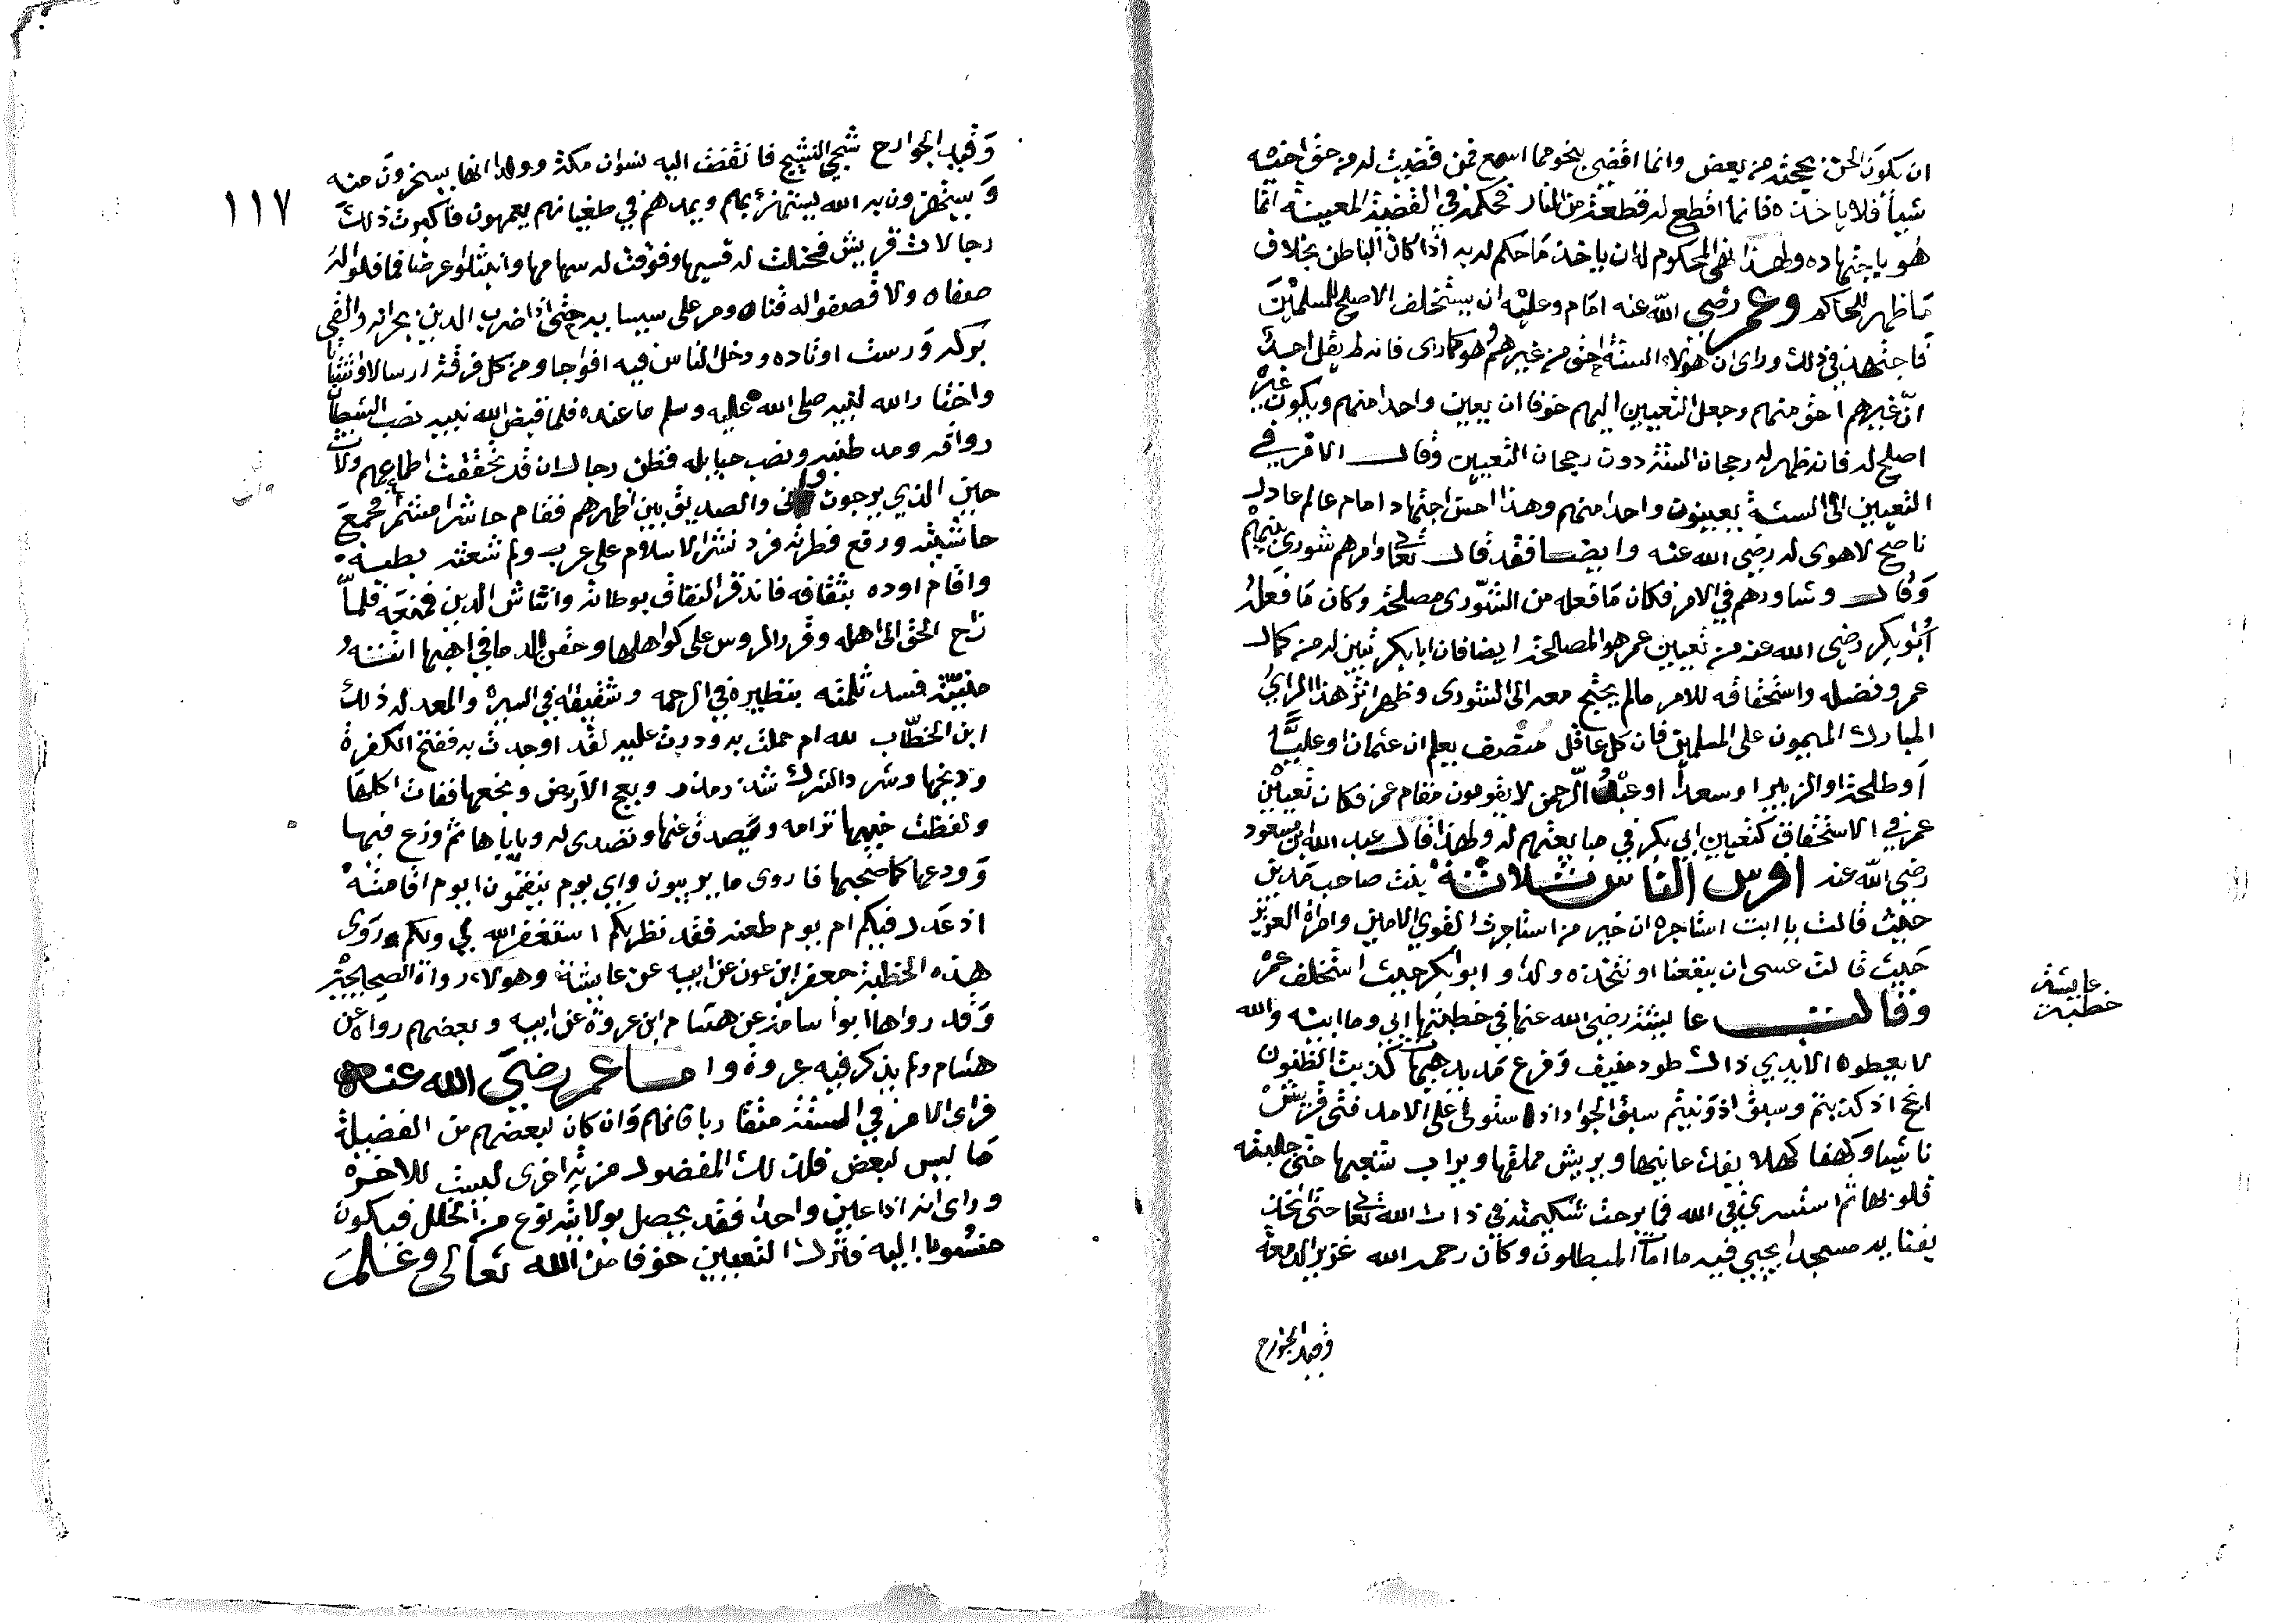 ان يكون الحن بحجته من بعض وانما اقضي بنحو مما اسمع فمن قضيت له من حق اخيه
شيأ فلا ياخذه فانما اقطع له قطعة من النار فحكمه في القضية المعينة انما
هو باجتهاده ولهذا نهى المحكوم له ان ياخذ ما حكم له به اذا كان الباطن بخلاف
ما ظهر للحاكم وعمر رضي الله عنه امام وعليه ان يستخلف الاصلح للمسلمين
فاجتهد في ذلك وراى ان هولاء الستة احق من غيرهم وهو كما راى فانه لم يقل احد
ان غيرهم احق منهم وجعل التعيين اليهم خوفا ان يعين واحدا منهم ويكون غيره
اصلح له فانه ظهر له رجحان الستة دون رجحان التعيين وقال الامر في
التعيين الى الستة يعينون واحدا منهم وهذا احسن اجتهاد امام عالم عادل
ناصح لا هوى له رضي الله عنه وايضا فقد قال تعالى وامرهم شورى بينهم
وقال وشاورهم في الامر فكان ما فعله من الشورى مصلحة وكان ما فعله
ابو بكر رضي الله عنه من تعيين عمر هو المصلحة ايضا فان ابا بكر تبين له من كمال
عمر وفضله واستحقاقه للامر ما لم يحتج معه الى الشورى وظهر اثر هذا الراي
المبارك الميمون على المسلمين فان كل عاقل منصف يعلم ان عثمان او عليا
او طلحة او الزبير او سعدا او عبد الرحمن لا يقومون مقام عمر فكان تعيين
عمر في الاستحقاق كتعيين ابي بكر في مبايعتهم له ولهذا قال عبد الله ابن مسعود
رضي الله عنه افرس الناس ثلاثة بنت صاحب مدين
حيث قالت يا ابت استاجره ان خير من استاجرت القوي الامين وامراة العزيز
حيث قالت عسى ان ينفعنا او نتخذه ولدا وابو بكر حيث استخلف عمر
وقالت عايشة رضي الله عنها في خطبتها ابي وما ابيه والله
لا يعطوه الايدي ذاك طود منيف وفرع مديد هيهات كذبت الظنون
انجح اذ كذبتم وسبق اذ ونيتم سبق الجواد اذا استولى على الامد فتى قريش
ناشيا وكهفا كهلا يفك عانيها ويريش مملقها ويراب شعبها حتى حلبته
قلوبها ثم استسرى في الله فما برحت شكيمته في ذات الله تعالى حتى اتخذ
بفنايه مسجدا يحيي فيه ما امات المبطلون وكان رحمه الله غزير الدمعة
وقيد الجوارح
عايشة
خطبة
١١٧
وقيد الجوارح شجي النشيج فانقضت اليه نسوان مكة وولدانها يسخرون منه
ويستهزون به الله يستهزئ بهم ويمدهم في طغيانهم يعمهون فاكبرت ذلك
رجالات قريش فحنت له قسيها وفوقت له سهامها وانتثلوا عرضا فما فلوا له
صفاه ولا قصفوا له قناه ومر على سيسايه حتى اذا ضرب الدين بجرانه والقى
بركه ورست اوتاده ودخل الناس فيه افواجا ومن كل فرقة ارسالا واشتاتا
واختار الله لنبيه صلى الله عليه وسلم ما عنده فلما قبض الله نبيه نصب الشيطان
رواقه ومد طنبه ونصب حبايله فظن رجال ان قد تحققت اطماعهم ولات
حين الذي يرجون وانى والصديق بين اظهرهم فقام حاشرا مشمرا فجمع
حاشيته ورفع قطريه فرد نشر الاسلام على غرب ولم شعثه بطبه
واقام اوده بثقافه فاندقر النفاق بوطاته وانتاش الدين فنعشه فلما
راح الحق الى اهله وقرر الروس على كواهلها وحقن الدما في اهبها اتته
منيته فسد ثلمته بنظيره في الرحمة وشقيقه في السيرة والمعدلة ذلك
ابن الخطاب لله ام حملت به ودرت عليه لقد اوحدت به ففنخ الكفرة
وديخها وشرد الشرك شذر مذر وبعج الارض وبخعها فقات اكلها
ولفظت خبيها ترامه ويصدف عنها وتصدى له وياباها ثم وزع فيها
وودعها كما صحبها فاروني ما يريبون واي يوم ينقمون ايوم اقامته
اذ عدل فيكم ام يوم طعنه فقد نظر لكم استغفر الله لي ولكم وروى
هذه الخطبة جعفر ابن عون عن ابيه عن عايشة وهولاء رواة الصحيحين
وقد رواها ابو اسامة عن هشام ابن عروة عن ابيه وبعضهم رواه عن
هشام ولم يذكر فيه عروة واما عمر رضي الله عنه
فراى الامر في الستة متقاربا فانهم وان كان لبعضهم من الفضيلة
ما ليس لبعض فلذلك المفضول مزية اخرى ليست للاخر
وراى انه اذا عين واحدا فقد يحصل بولايته نوع من الخلل فيكون
منسوبا اليه فترك التعيين خوفا من الله تعالى وعلم